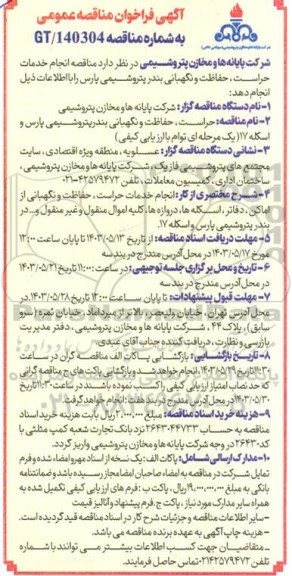 آگهی فراخوان مناقصه عمومی
به شماره مناقصه GT/140304
شرکت پایانه ها و مخازن پتروشیمی در نظر دارد مناقصه انجام خدمات
حراست، حفاظت و نگهبانی بندر پتروشیمی پارس را با اطلاعات ذیل
انجام دهد:
۱- نام دستگاه مناقصه گزار: شرکت پایانه ها و مخازن پتروشیمی
۲- نام مناقصه: حراست، حفاظت و نگهبانی بندر پتروشیمی پارس و
اسکله ۱۷ (یک مرحله ای توام با ارزیابی کیفی)
۳- نشانی دستگاه مناقصه گزار: عسلویه، منطقه ویژه اقتصادی، سایت
مجتمع های پتروشیمی فاز یک، شرکت پایانه ها و مخازن پتروشیمی،
ساختمان اداری، کمیسیون معاملات، تلفن ۴۲۵۷۹۴۷۲-۰۲۱
۴- شرح مختصری از کار: انجام خدمات حراست، حفاظت و نگهبانی از
اماکن، دفاتر، اسکله ها، دروازه ها، کلیه اموال منقول و غیر منقول و... در
بندر پتروشیمی پارس و اسکله ۱۷.
۵- مهلت دریافت اسناد مناقصه: از تاریخ ۱۴۰۳/۰۵/۱۳ تا پایان ساعت ۱۲:۰۰
مورخ ۱۴۰۳/۰۵/۱۷ در محل آدرس مندرج در بند سه
۶- تاریخ و محل برگزاری جلسه توجیهی: در ساعت ۱۱:۰۰ تاریخ ۱۴۰۳/۰۵/۲۱
در محل آدرس مندرج در بند سه
۷- مهلت قبول پیشنهادات: تا پایان ساعت ۱۲:۰۰ تاریخ ۱۴۰۳/۰۵/۲۸ در
محل آدرس تهران، خیابان ولیعصر، بالاتر از میرداماد، خیابان ثمره (سرو
سابق)، پلاک ۴۴، شرکت پایانه ها و مخازن پتروشیمی، دفتر مدیریت
بازرسی و نظارت، دریافت کننده جناب آقای عبدی
۸- تاریخ بازگشایی: بازگشایی پاکات الف مناقصه گران در ساعت
تاریخ ۱۴۰۳/۰۵/۲۹ انجام خواهد شد و بازگشایی پاکت های ج مناقصه گرانی
که حد نصاب امتیاز ارزیابی کیفی را کسب نموده باشند در ساعت تاریخ
۱۴۰۳/۰۵/۳۰ در محل آدرس مندرج در بند هفت انجام خواهد گرفت.
۹- هزینه خرید اسناد مناقصه: مبلغ ۲.۰۰۰.۰۰۰ ریال بابت هزینه خرید اسناد
مناقصه به حساب ۲۶۴۳۰۴۴۷۳۳ نزد بانک تجارت شعبه کمپ مثلثی با
کد ۲۶۴۳۰ در وجه شرکت پایانه ها و مخازن پتروشیمی واریز گردد.
۱۰- مدارک ارسالی شامل: پاکات الف: یک نسخه از اسناد مهر و امضاء شده و فرم
تمایل شرکت در مناقصه به امضاء صاحبان امضا مجاز رسیده باشد و ضمانتنامه
بانکی به مبلغ ریال، پاکت ب: فرم های ارزیابی کیفی تکمیل شده به
همراه سایر مدارک مورد نیاز، پاکت ج: فرم پیشنهاد و آنالیز قیمت
- سایر اطلاعات مناقصه و جزئیات شرح کار در اسناد مناقصه قید گردیده است.
- هزینه چاپ آگهی به عهده برنده مناقصه می باشد.
- متقاضیان جهت کسب اطلاعات بیشتر می توانند با شماره
تلفن ۰۲۱۴۲۵۷۹۴۷۲ تماس حاصل فرمایند.